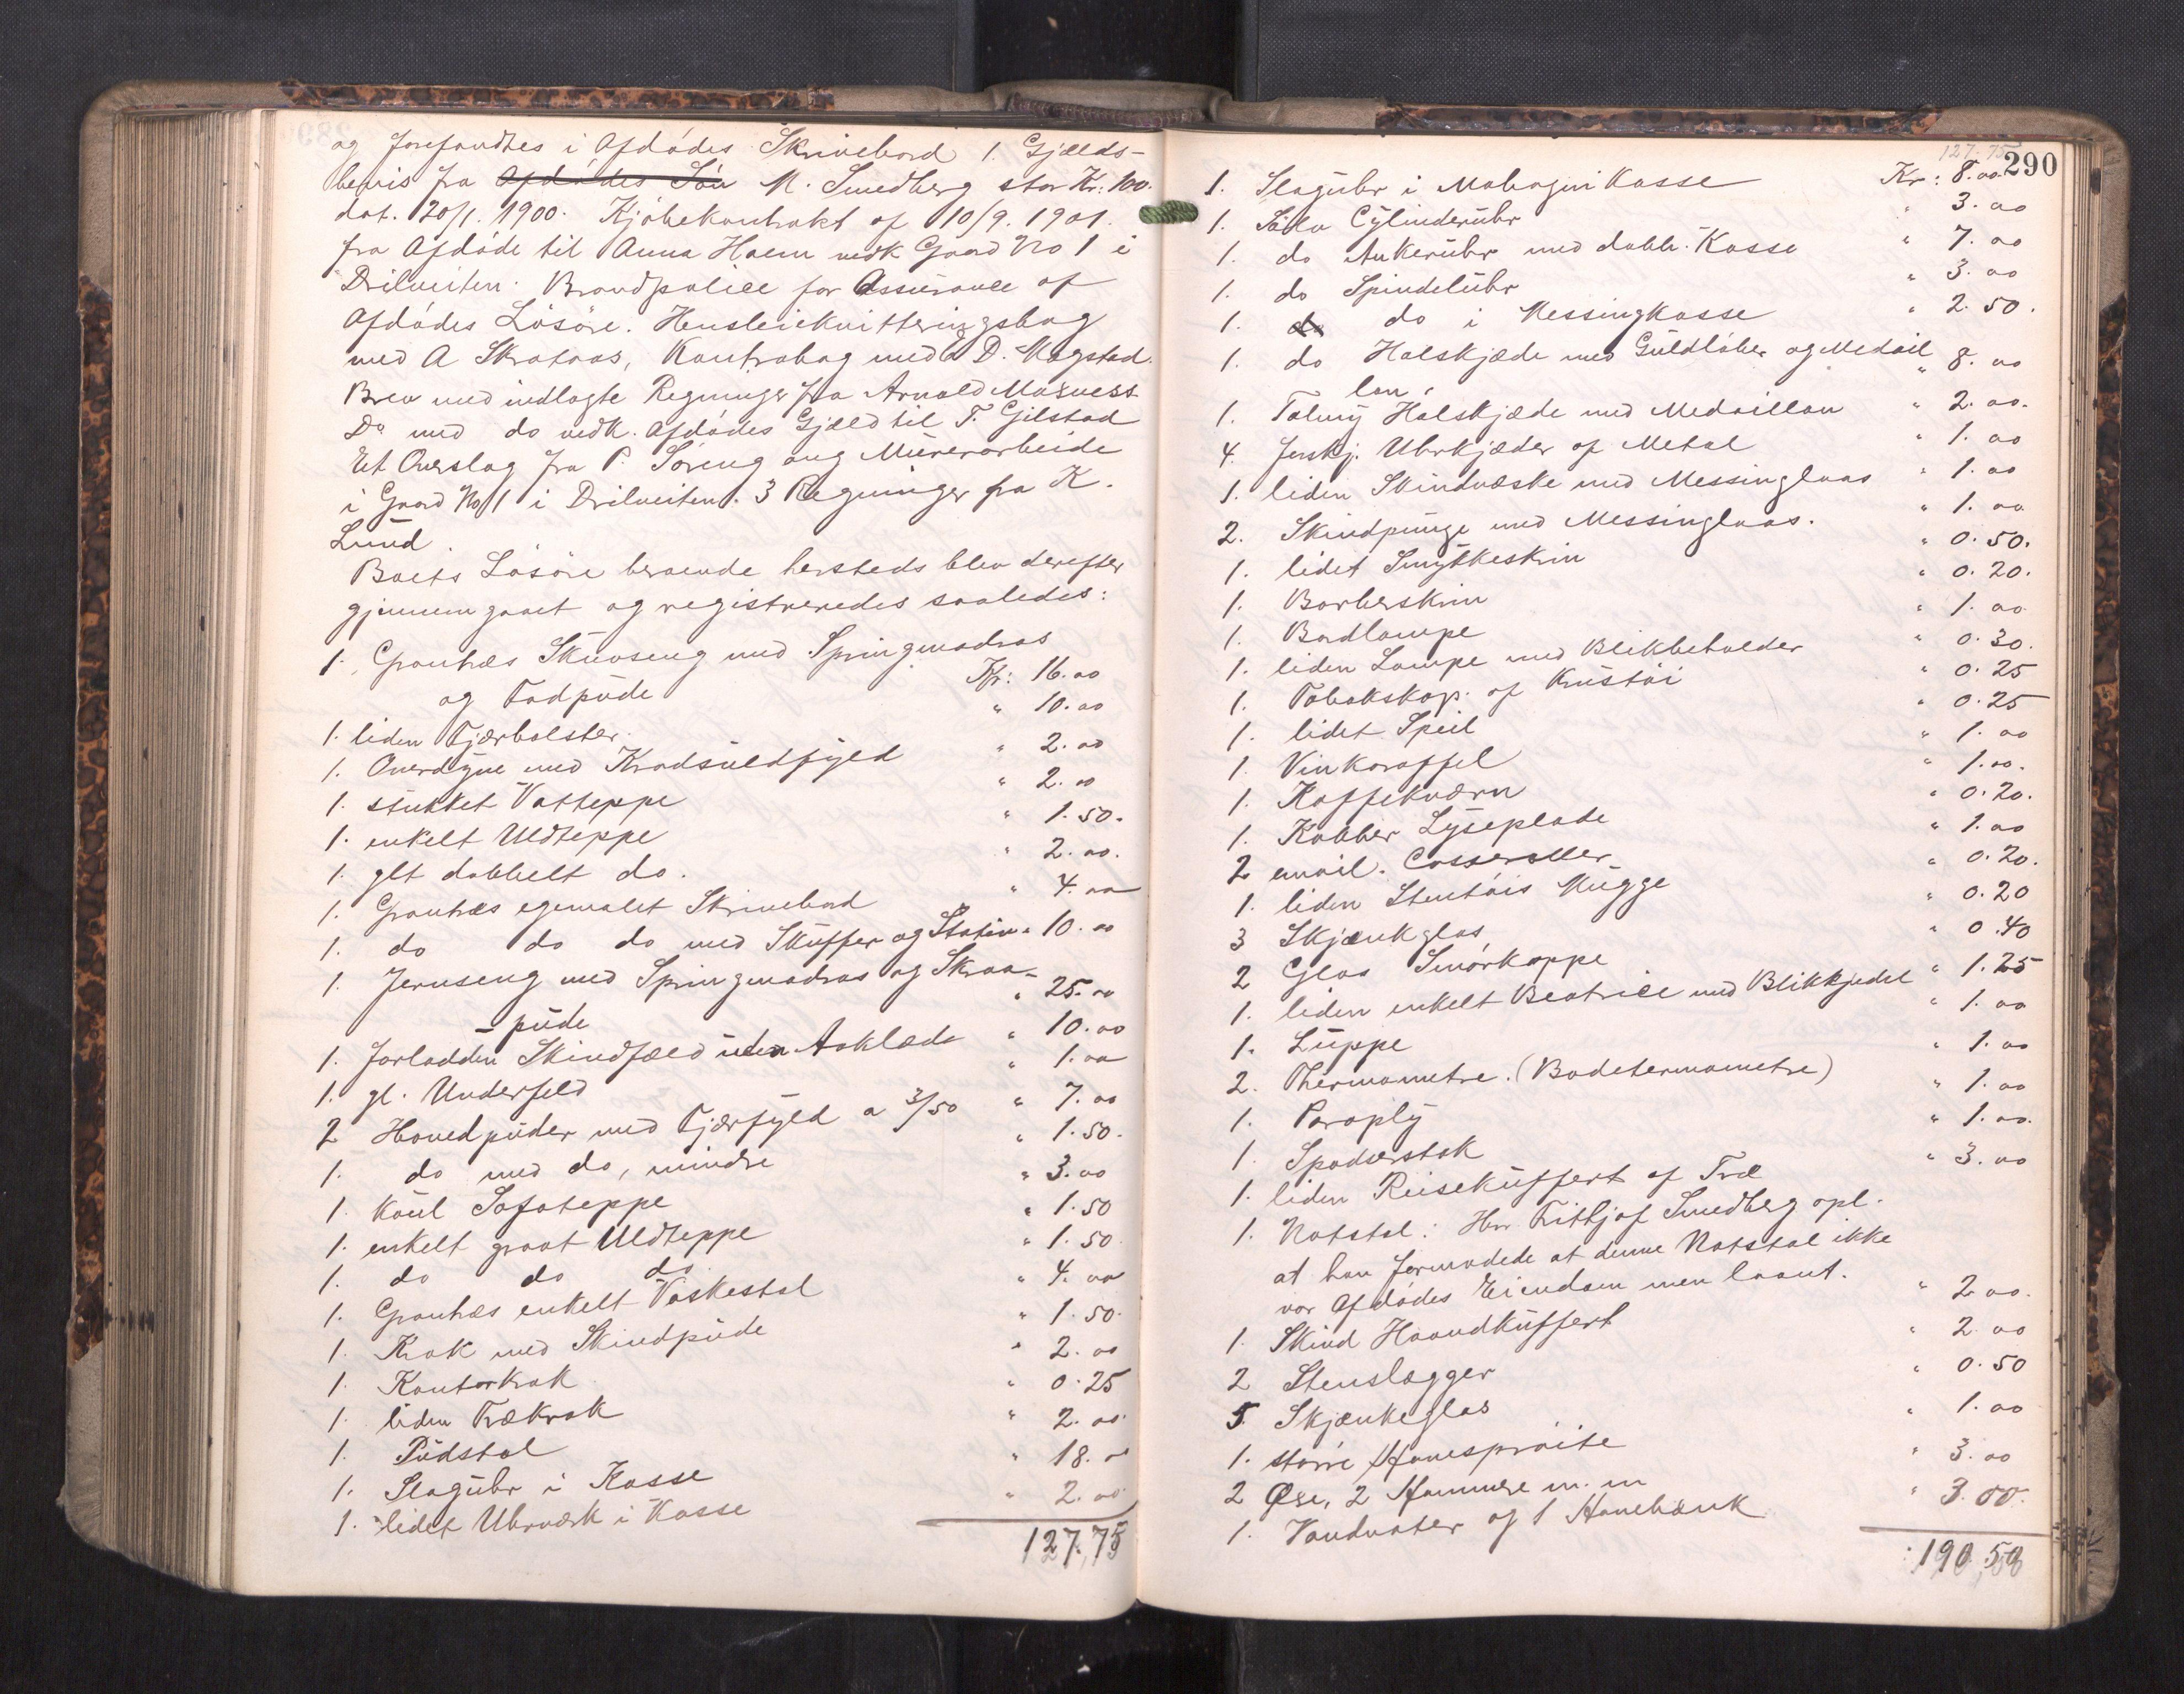 og forefandtes i Afdødes Skrivebord 1. Gjælds-
bevis fra Afdødes Søn M. Smedberg stor Kr: 100.
dat. 20/1. 1900. Kjøbekontrakt af 10/9. 1901.
fra Afdøde til Anna Haem vedk Gaard No 1 i
Drilveiten. Brandpolice for Assurance af
Afdødes Løsøre. Husleiekvitteringsbog
med A Skrataas, Kontrabog med D. Magstad.
Brev med indlagte Regninger fra Arnold Mosness
Do med do vedk. Afdødes Gjæld til T. Gilstad
Et Overslag fra P. Søreng ang Murerarbeide
i Gaard No 1 i Drilveiten. 3 Regninger fra K.
Lund.
Boets Løsøre beroende hersteds blev derefter
gjennemgaaet og registreredes saaledes:
1. Grantræs Skuvseng med Springmadras
og Fodpude Kr: 16.00
1. liden Fjærbolster. " 10.00
1. Overdyne med Kradsuldfyld " 2.00
1. stukket Vatteppe " 2.00
1. enkelt Uldteppe " 1.50.
1. glt dobbelt do. " 2.00.
1. Grantræs egemalet Skrivebord " 4.00
1. do do do med Skuffer og Stativ " 10.00
1. Jernseng med Springmadras og Skraa-
-pude " 25.00
1. forladden Skindfæld uden Aaklæde " 10.00
1. gl. Underfeld " 1.00
2 Hovedpuder med Fjærfyld a 3/50 " 7.00
1. do med do, mindre " 1.50.
1. Kaul Sofateppe " 3.00
1. enkelt graat Uldteppe " 1.50
1. do do do " 1.50.
1. Grantræs enkelt Vaskestol " 4.00
1. Krak med Skindpude " 1.50.
1. Kontorkrak " 2.00
1. liden Trækrak " 0.25
1. Pudstol " 2.00.
1. Slaguhr i Kasse " 18.00
1. lidet Uhrværk i Kasse " 2.00
127.75
127.75
290
1. Slaguhr i Mahogni Kasse Kr: 8.00
1. Sølv Cylinderuhr " 3.00
1. do Ankeruhr med dobb. Kasse " 7.00
1. do Spindeluhr " 3.00
1. do do i Messingkasse " 2.50.
1. do Halskjæde med Guldløber og Medail
lon. " 8.00
1. Talmi Halskjæde med Medaillon " 2.00.
4. forskj. Uhrkjæder af Metal " 1.00
1. liden Skindvæske med Messinglaas " 1.00
2. Skindpunge med Messinglaas. " 1.00
1. lidet Smykkeskrin " 0.50.
1. Barberskrin " 0.20.
1. Bordlampe " 1.00
1. liden Lampe med Blikbeholder " 0.30.
1. Tobakskop. af Krustøi " 0.25
1. lidet Speil " 0.25
1. Vinkaraffel " 1.00
1. Kaffekværn " 1.00.
1. Kobber Lyseplade " 0.20.
2 email. Casseroller " 1.00
1. liden Stentøis Mugge " 0.20.
3 Skjænkglas " 0.20
2 Glas Smørkoppe " 0.40
1. liden enkelt Beatrice med Blikkjedel " 1.25
1. Luppe " 1.00
2. Thermometre. (Badetermometre) " 1.00
1. Paraply " 1.00
1. Spadserstok " 1.00.
1. liden Reisekuffert af Træ " 3.00
1. Natstol: Hr. Frithjof Smedberg opl.
at han formodede at denne Natstol ikke
var Afdødes Eiendom men laant.
1. Skind Haandkuffert " 2.00.
2 Stenslægger " 2.00
5 Skjænkeglas " 0.50
1. større Havesprøite " 1.00
2 Øxe, 2 Hammere m. m " 3.00
1. Vandvater og 1 Høvelbænk " 3.00.
190.50